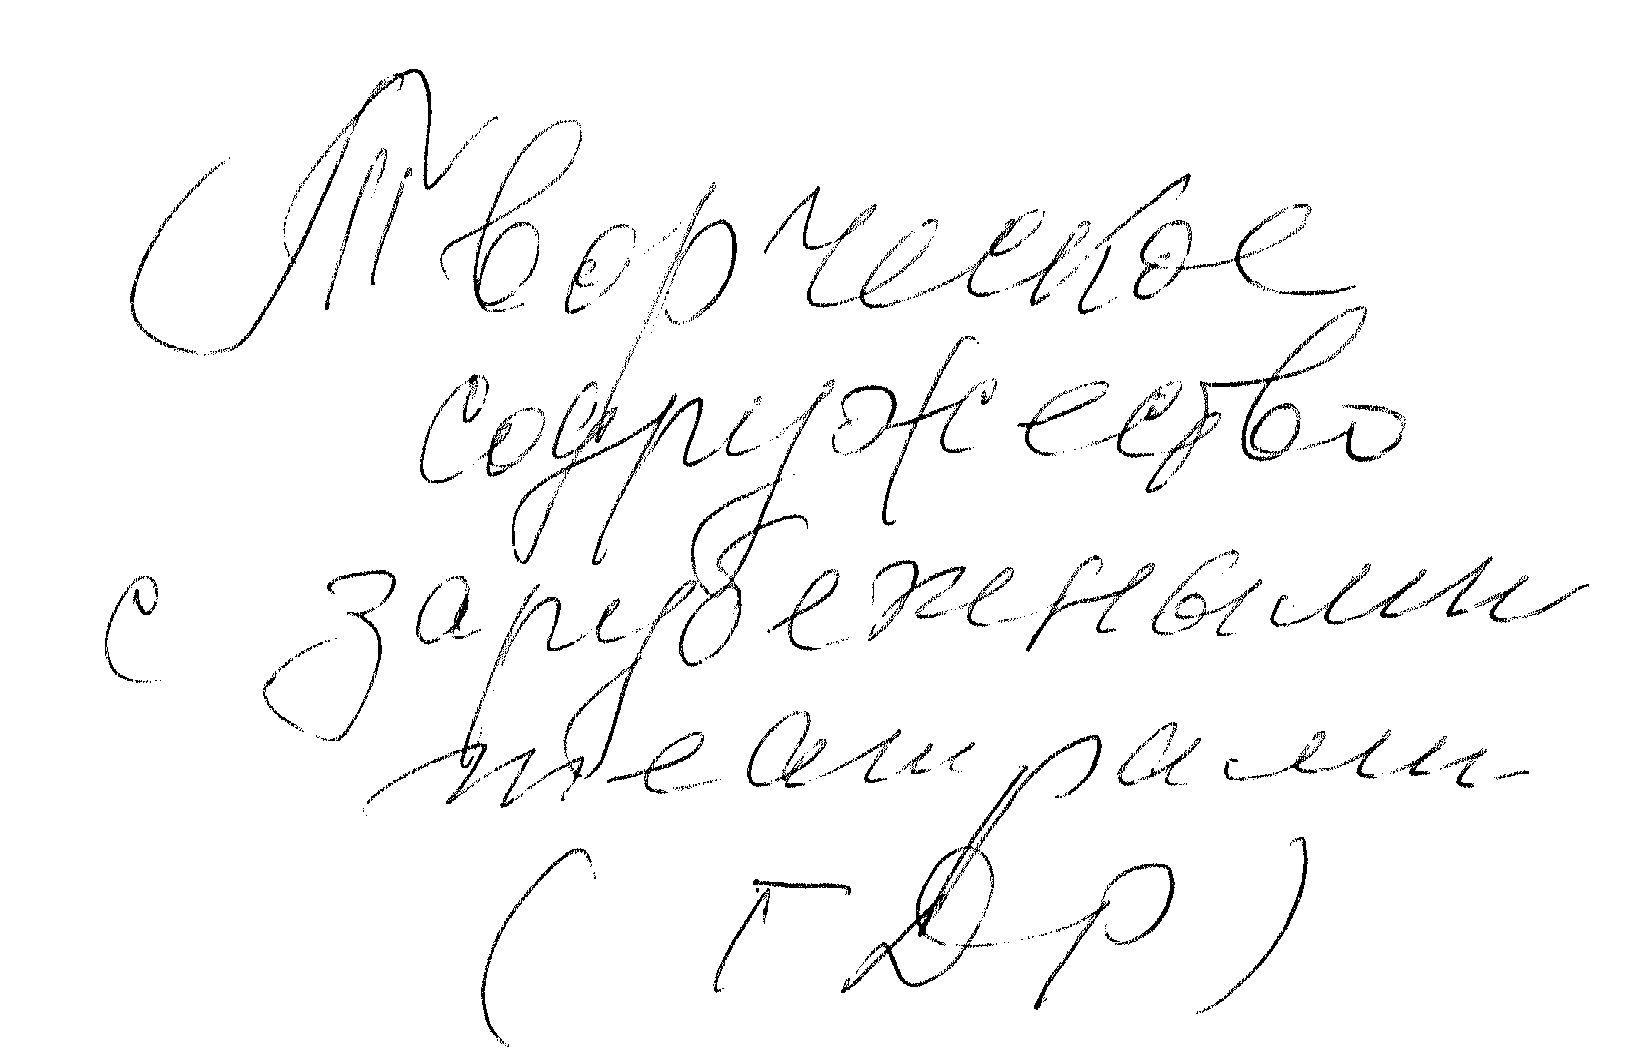 Творческое
содружество
с зарубежными
театрами
(ГДР)